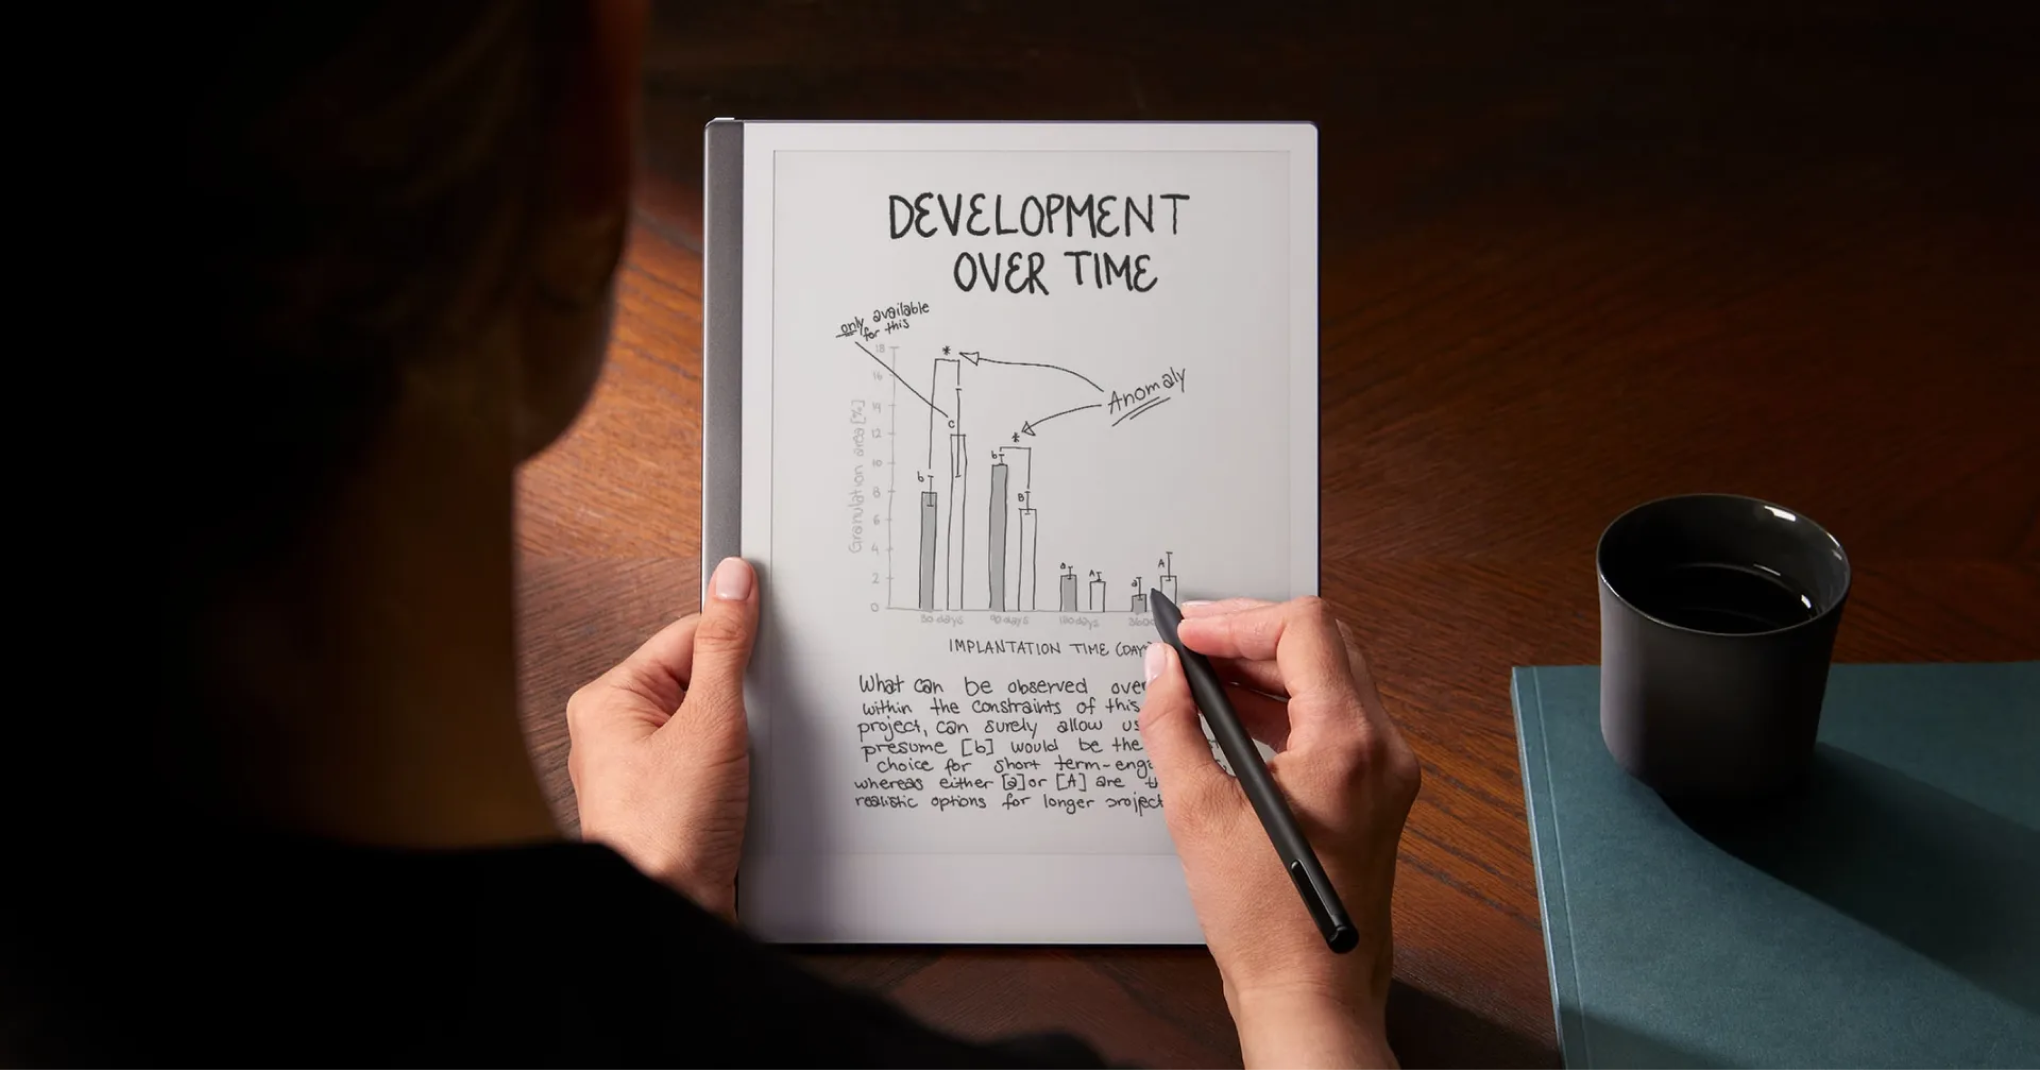 DEVELOPMENT
OVER TIME
only available
for this
Anomaly
Granulation area [%]
18
16
14
12
10
8
6
4
2
0
*
*
b
c
b
B
a
A
a
A
30 days
90 days
180 days
IMPLANTATION TIME (DAY
What can be observed over
within the constraints of this
project, can surely allow us
presume [b] would be the
choice for short term-eng
whereas either [a] or [A] are
realistic options for longer project